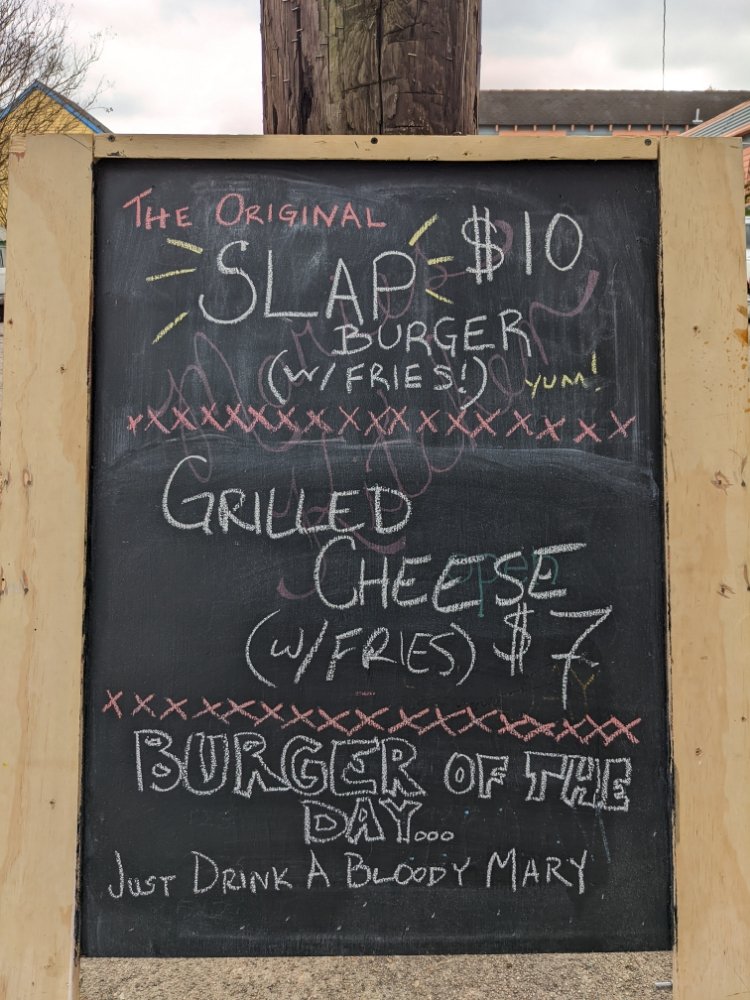 THE ORIGINAL
SLAP $10
BURGER
(W/ FRIES!) YUM!
xxxxxxxxxxxxxxxxxxxx
GRILLED
CHEESE
open
(W/FRIES) $7
xxxxxxxxxxxxxxxxxxx
BURGER OF THE
DAY...
JUST DRINK A BLOODY MARY